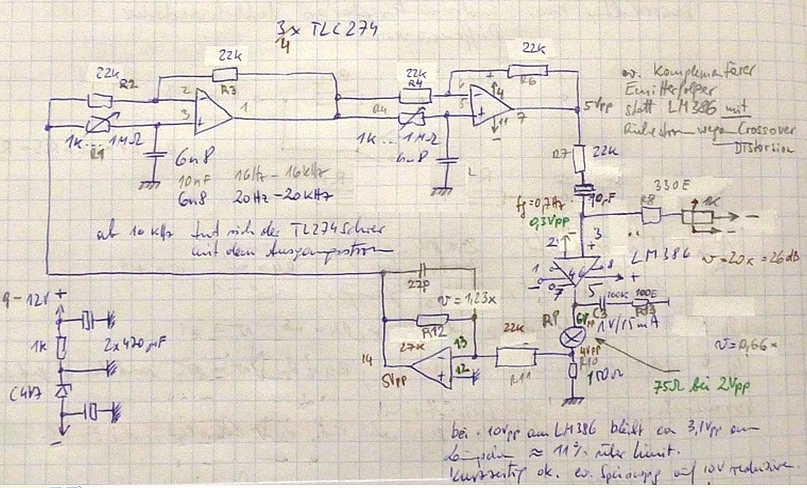 3x TLC274
4
22k
R2
22k
R3
22k
R4
22k
R6
2
3
1
6
5
7
4
11
5Vpp
ev. Komplementärer
Emitterfolger
statt LM386 mit
Ruhestrom wegen Crossover
Distorsion
1k... 1MΩ
R1
1k.. 1MΩ
6n8
10nF 16Hz - 16kHz
6n8 20Hz - 20kHz
6n8
R7
22k
10µF
fg=0,7Hz
0,3Vpp
330E
R8
1K
ab 10 kHz tut sich der TL274 schwer
mit dem Ausgangsstrom
2
3
+
LM386
v=20x = 26dB
1
8
4
6
7
5
22p
v = 1,23x
R12
27k
14
5Vpp
13
12
22k
R11
C3
100n
100E
R13
6Vpp
1V/15mA
4Vpp
R10
150Ω
v=0,66x
75Ω bei 2Vpp
9-12V
+
1k
2x470µF
C4V7
-
bei 10Vpp am LM386 bleibt ca 3,1Vpp am
Lämpchen ≈ 11% über Limit.
Kurzzeitig ok. ev. Speisespg auf 10V reduzieren.